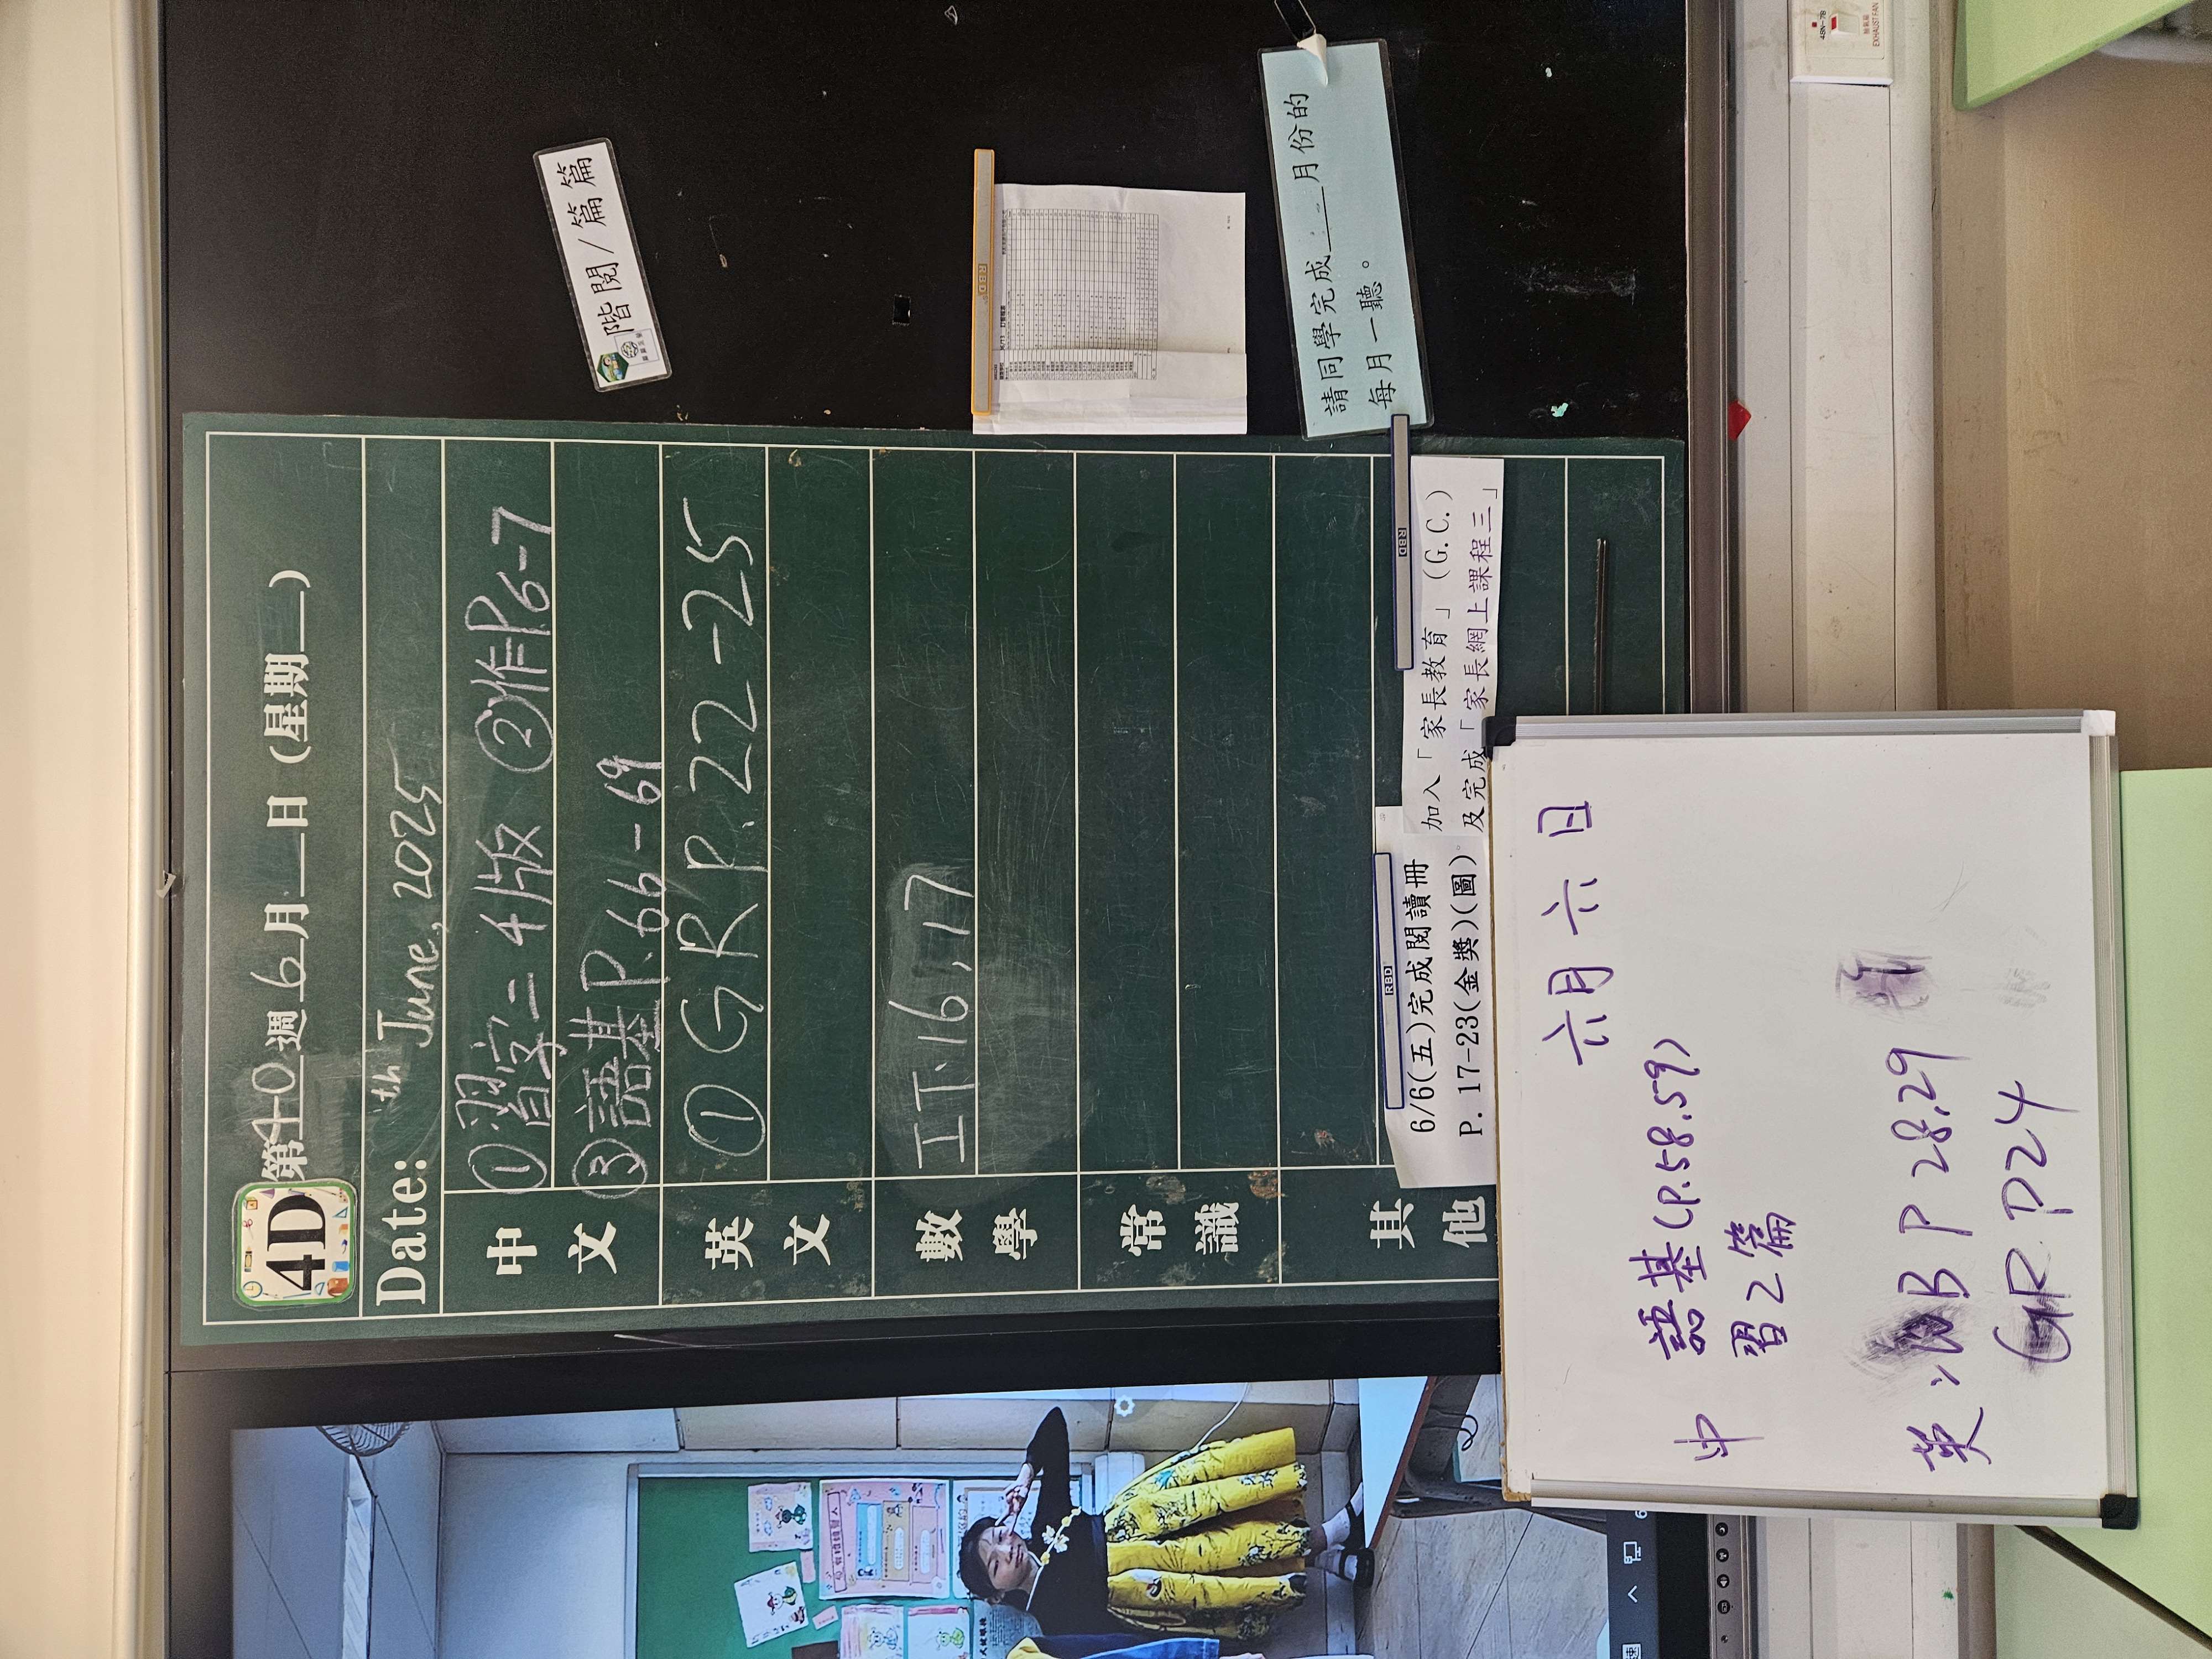 4D
第40週6月__日(星期__)
Date: th June, 2025
中文
①習字二4版 ②作P.6-7
③語基P.66-69
英文
①GR P.22-25
數學
工下16,17
常識
其他
6/6(五)完成閱讀冊
P.17-23(金獎)(圖)。
加入「家長教育」(G.C.)
及完成「家長網上課程三」
階閱/篇篇
RBD
請同學完成___月份的
每月一聽。
RBD
RBD
六月六日
中 語基(P.58.59)
習2篇
英 WB P28,29
GR. P24
EXHAUST FAN